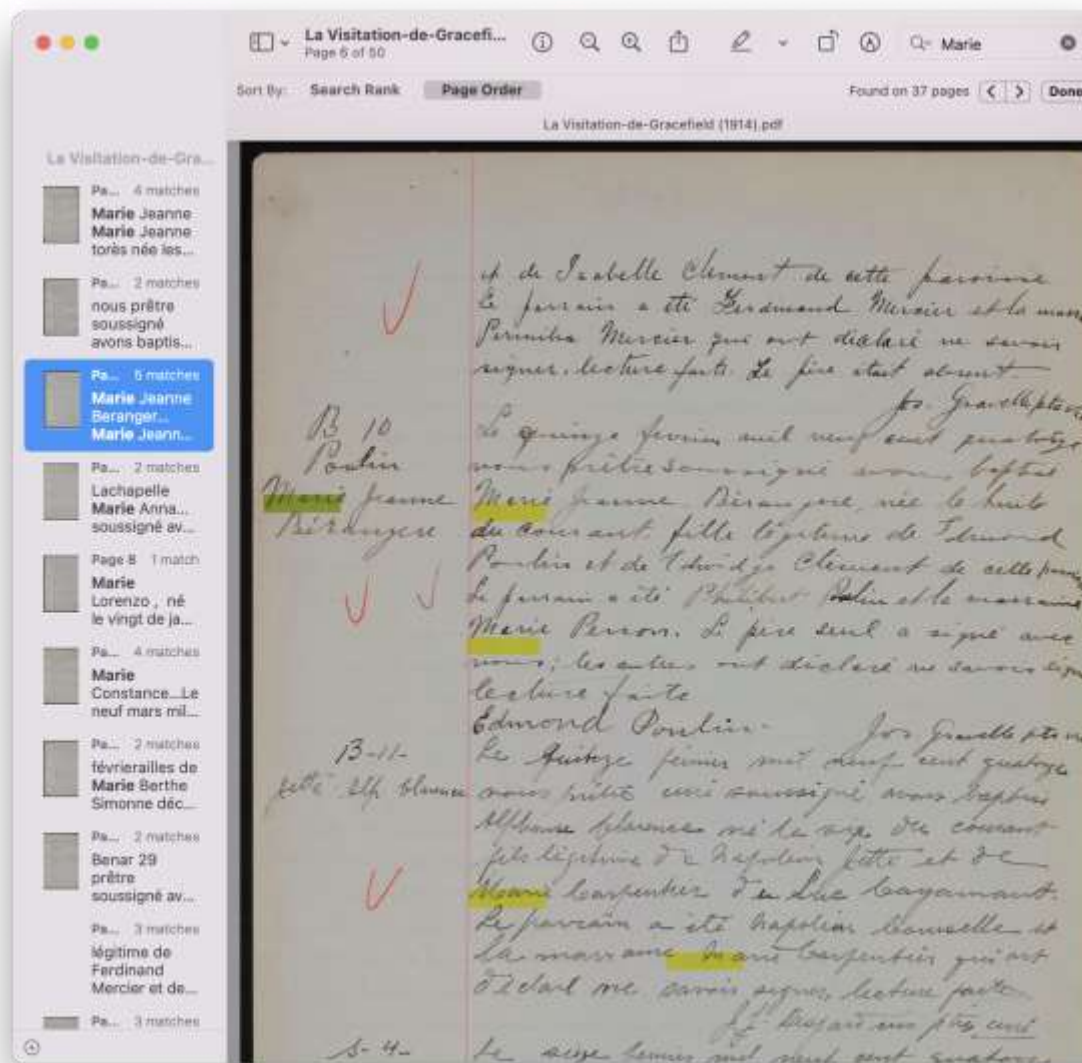 La Visitation-de-Gracefi...
Page 6 of 50
Marie
Sort By: Search Rank Page Order
Found on 37 pages
Done
La Visitation-de-Gracefield (1914).pdf
La Visitation-de-Gra...
Pa... 4 matches
Marie Jeanne
Marie Jeanne
torès née les...
Pa... 2 matches
nous prêtre
soussigné
avons baptis...
Pa... 5 matches
Marie Jeanne
Beranger...
Marie Jeann...
Pa... 2 matches
Lachapelle
Marie Anna...
soussigné av...
Page 8 1 match
Marie
Lorenzo , né
le vingt de ja...
Pa... 4 matches
Marie
Constance...Le
neuf mars mil...
Pa... 2 matches
févrierailles de
Marie Berthe
Simonne déc...
Pa... 2 matches
Benar 29
prêtre
soussigné av...
Pa... 3 matches
légitime de
Ferdinand
Mercier et de...
Pa... 3 matches
et de Isabelle Clément de cette paroisse
Le parrain a été Ferdinand Mercier et la
Mercier qui ont déclaré ne savoir
signer. lecture faite. Le père était absent.
Jos. Gravelle ptre
B 10
Poulin
Marie Jeanne
Bérangere
Le quinze février mil neuf cent quatorze
nous prêtre soussigné avons baptisé
Marie Jeanne Bérangère née le huit
du courant fille légitime de Edmond
Poulin et de Edwidge Clément de cette
Le parrain a été Philibert Poulin et la marraine
Marie Perron. Le père seul a signé avec
nous; les autres ont déclaré ne savoir
lecture faite
Edmond Poulin. Jos Gravelle ptre
B-11-
Le quinze février mil neuf cent quatorze
nous prêtre curé soussigné avons baptisé
Alphonse né le du courant
fils légitime de Napoléon et de
Marie Carpentier du Lac Cayamant.
Le parrain a été Napoléon et
la marraine Marie Carpentier qui ont
déclaré ne savoir signer, lecture faite
ptre curé
S-4-
Le seize mil neuf cent